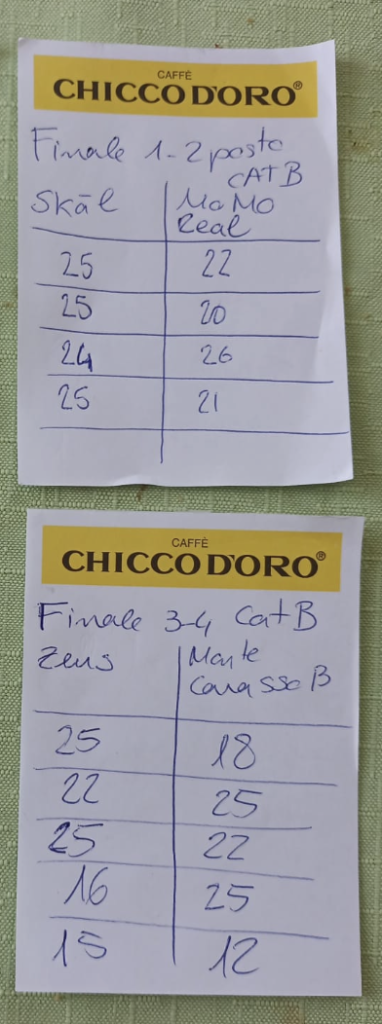 CAFFÈ
CHICCO D'ORO®
Finale 1-2 posto
CAT B
Skāl MoMo
Real
25 22
25 20
24 26
25 21
CAFFÈ
CHICCO D'ORO®
Finale 3-4 Cat B
Zeus Monte
Carasso B
25 18
22 25
25 22
16 25
15 12